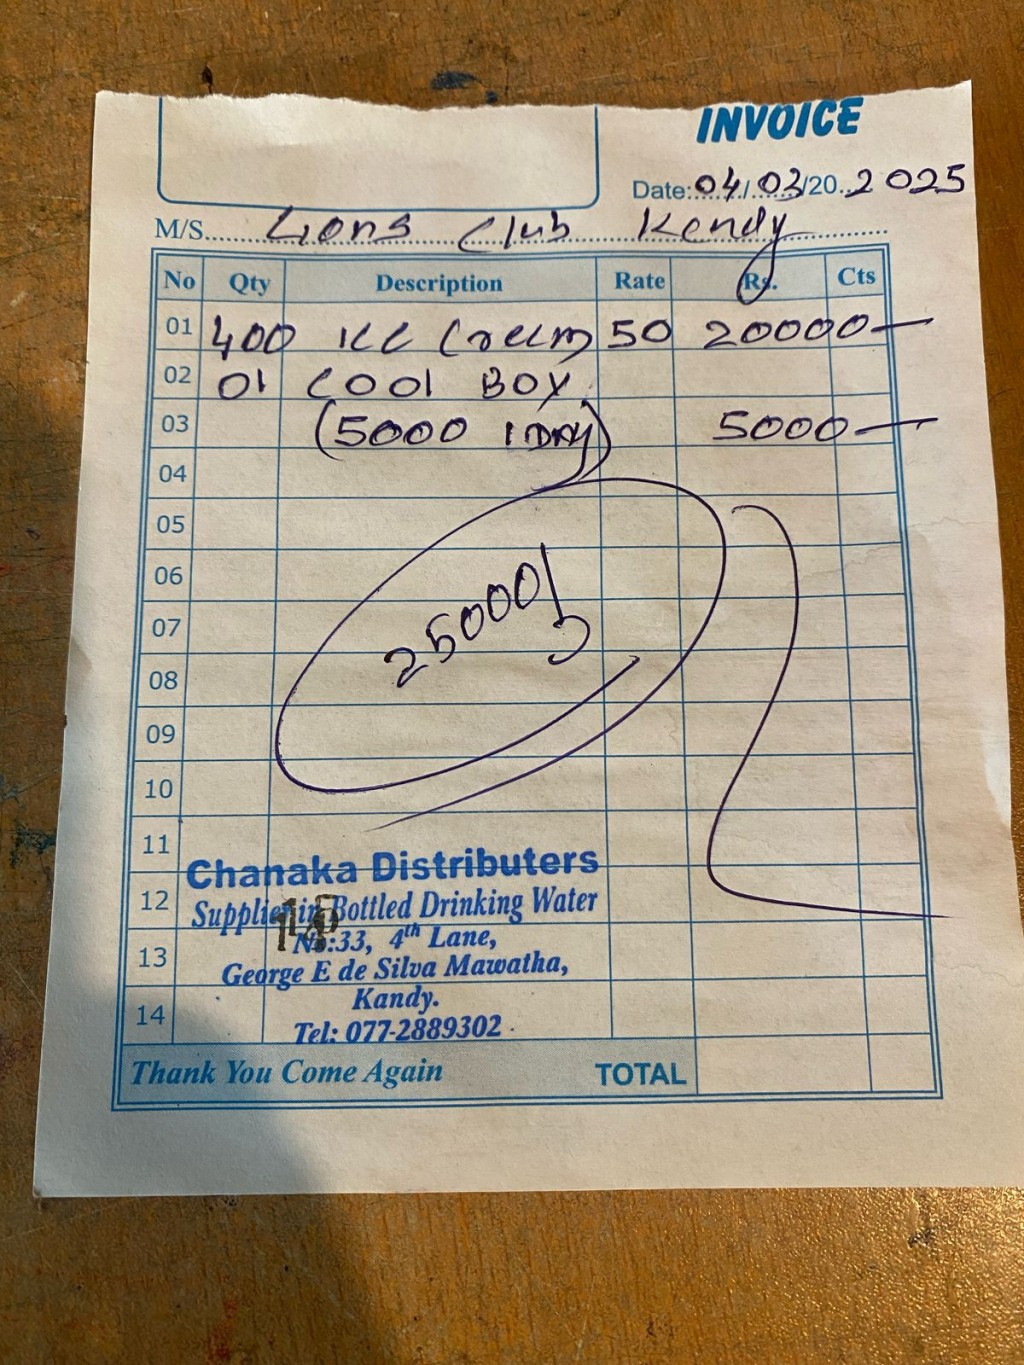 INVOICE
Date: 04/03/20..2025
M/S. Lions Club Kandy
No Qty Description Rate Rs. Cts
01 400 ICC Cream 50 20000 —
02 01 COOl BOX
03 (5000 1 DAY) 5000 —
04
05
06
25000/
07
08
09
10
11
Chanaka Distributers
12 Supplier in Bottled Drinking Water
No:33, 4th Lane,
13 George E de Silva Mawatha,
Kandy.
14 Tel: 077-2889302
Thank You Come Again TOTAL